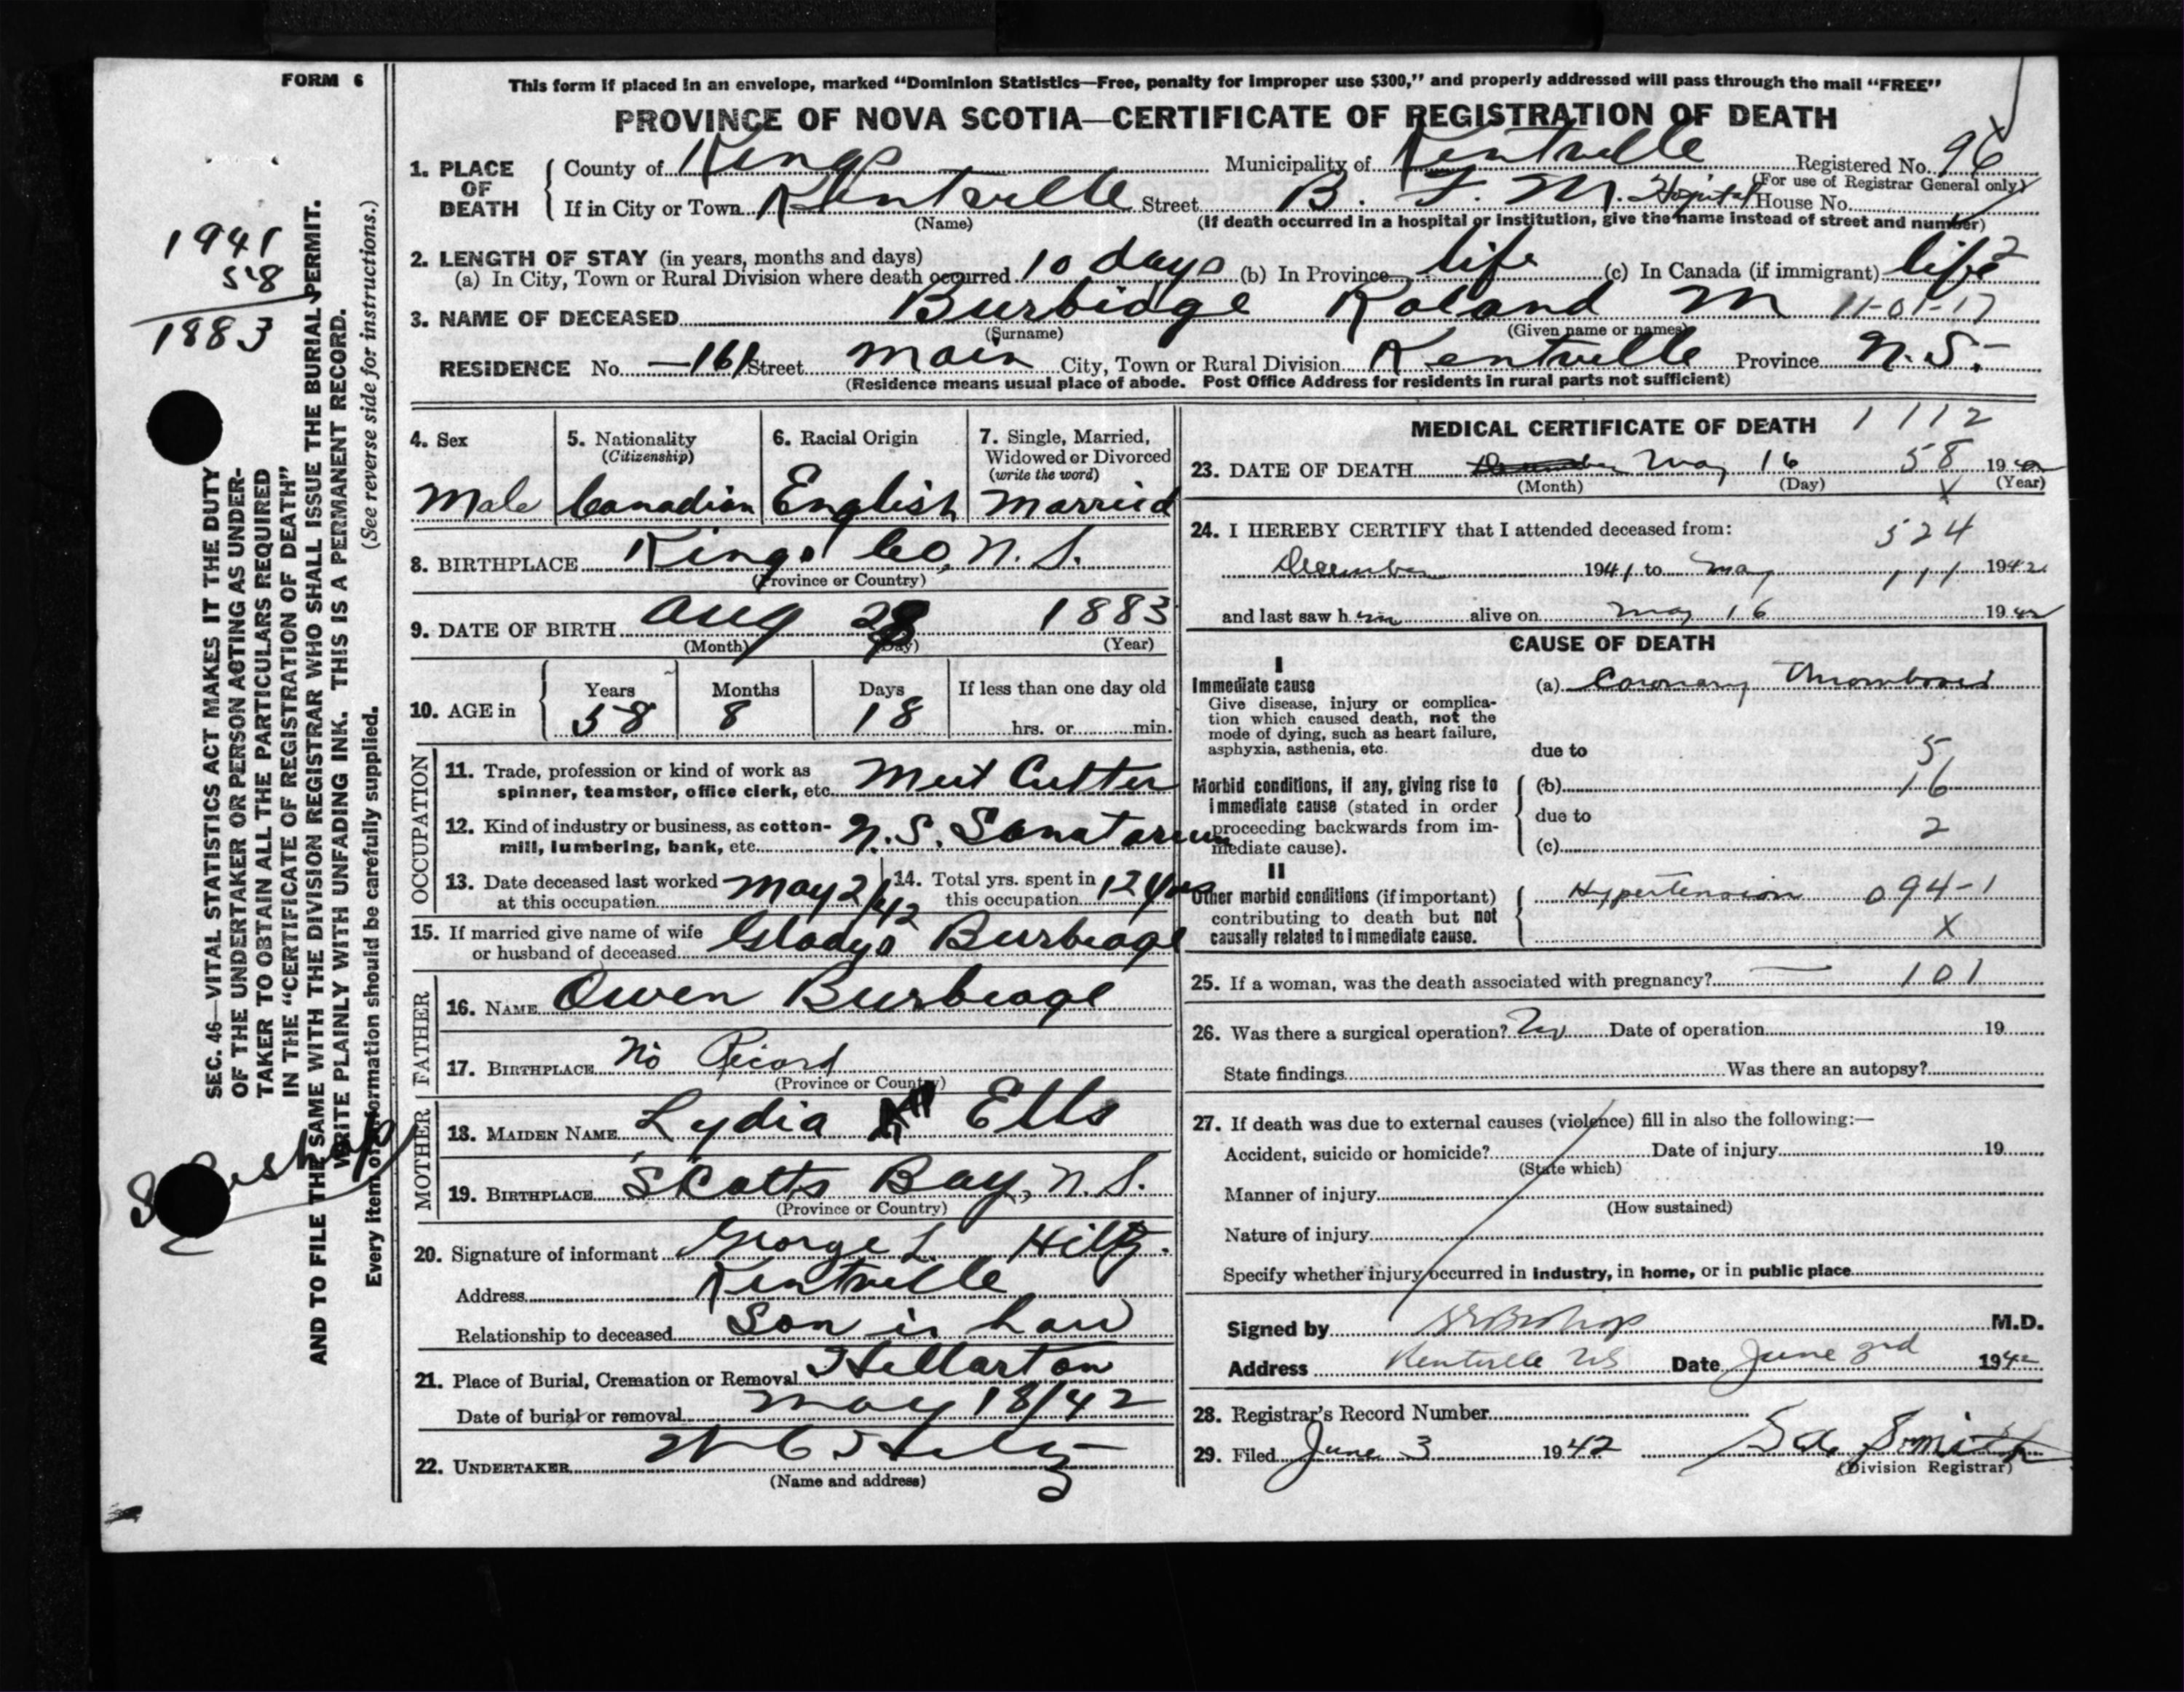 FORM 6
This form if placed in an envelope, marked “Dominion Statistics—Free, penalty for improper use $300,” and properly addressed will pass through the mail “FREE”
PROVINCE OF NOVA SCOTIA—CERTIFICATE OF REGISTRATION OF DEATH
1. PLACE OF DEATH { County of Kings Municipality of Kentville Registered No. 96
(For use of Registrar General only)
If in City or Town Kentville Street B. F. M. Hospital House No.
(Name) (If death occurred in a hospital or institution, give the name instead of street and number)
2. LENGTH OF STAY (in years, months and days)
(a) In City, Town or Rural Division where death occurred 10 days (b) In Province life (c) In Canada (if immigrant) life 2
3. NAME OF DECEASED Burbidge Roland M 11-01-17
(Surname) (Given name or names)
RESIDENCE No. —161 Street Main City, Town or Rural Division Kentville Province N.S.
(Residence means usual place of abode. Post Office Address for residents in rural parts not sufficient)
1941
58
1883
SEC. 46—VITAL STATISTICS ACT MAKES IT THE DUTY
OF THE UNDERTAKER OR PERSON ACTING AS UNDER-
TAKER TO OBTAIN ALL THE PARTICULARS REQUIRED
IN THE “CERTIFICATE OF REGISTRATION OF DEATH”
AND TO FILE THE SAME WITH THE DIVISION REGISTRAR WHO SHALL ISSUE THE BURIAL PERMIT.
WRITE PLAINLY WITH UNFADING INK. THIS IS A PERMANENT RECORD.
Every item of information should be carefully supplied. (See reverse side for instructions.)
4. Sex
Male
5. Nationality
(Citizenship)
Canadian
6. Racial Origin
English
7. Single, Married,
Widowed or Divorced
(write the word)
Married
8. BIRTHPLACE Kings Co, N.S.
(Province or Country)
9. DATE OF BIRTH Aug 28 1883
(Month) (Day) (Year)
10. AGE in { Years Months Days If less than one day old
58 8 18 hrs. or min.
OCCUPATION
11. Trade, profession or kind of work as
spinner, teamster, office clerk, etc. Meet Cutter
12. Kind of industry or business, as cotton-
mill, lumbering, bank, etc. N.S. Sanatorium
13. Date deceased last worked
at this occupation May 2/42
14. Total yrs. spent in
this occupation 12 yrs
15. If married give name of wife
or husband of deceased Gladys Burbidge
FATHER
16. NAME Owen Burbidge
17. BIRTHPLACE No Record
(Province or Country)
MOTHER
18. MAIDEN NAME Lydia Ells
19. BIRTHPLACE Scotts Bay, N.S.
(Province or Country)
20. Signature of informant George L. Hiltz.
Address Kentville
Relationship to deceased Son in Law
21. Place of Burial, Cremation or Removal Stellarton
Date of burial or removal May 18/42
22. UNDERTAKER
(Name and address)
MEDICAL CERTIFICATE OF DEATH 1112
23. DATE OF DEATH May 16 58 1942
(Month) (Day) X (Year)
24. I HEREBY CERTIFY that I attended deceased from: 524
December 1941 to May 111 1942
and last saw him alive on May 16 1942
CAUSE OF DEATH
I
Immediate cause
Give disease, injury or complica-
tion which caused death, not the
mode of dying, such as heart failure,
asphyxia, asthenia, etc.
(a) Coronary Thrombosis
due to 5
Morbid conditions, if any, giving rise to
immediate cause (stated in order
proceeding backwards from im-
mediate cause).
(b) 16
due to
(c) 2
II
Other morbid conditions (if important)
contributing to death but not
causally related to immediate cause.
Hypertension 094-1
X
25. If a woman, was the death associated with pregnancy? — 101
26. Was there a surgical operation? No Date of operation 19
State findings Was there an autopsy?
27. If death was due to external causes (violence) fill in also the following:—
Accident, suicide or homicide? Date of injury 19
(State which)
Manner of injury
(How sustained)
Nature of injury
Specify whether injury occurred in industry, in home, or in public place
Signed by Bishop M.D.
Address Kentville NS Date June 3rd 1942
28. Registrar’s Record Number
29. Filed June 3 1942 Smith
(Division Registrar)